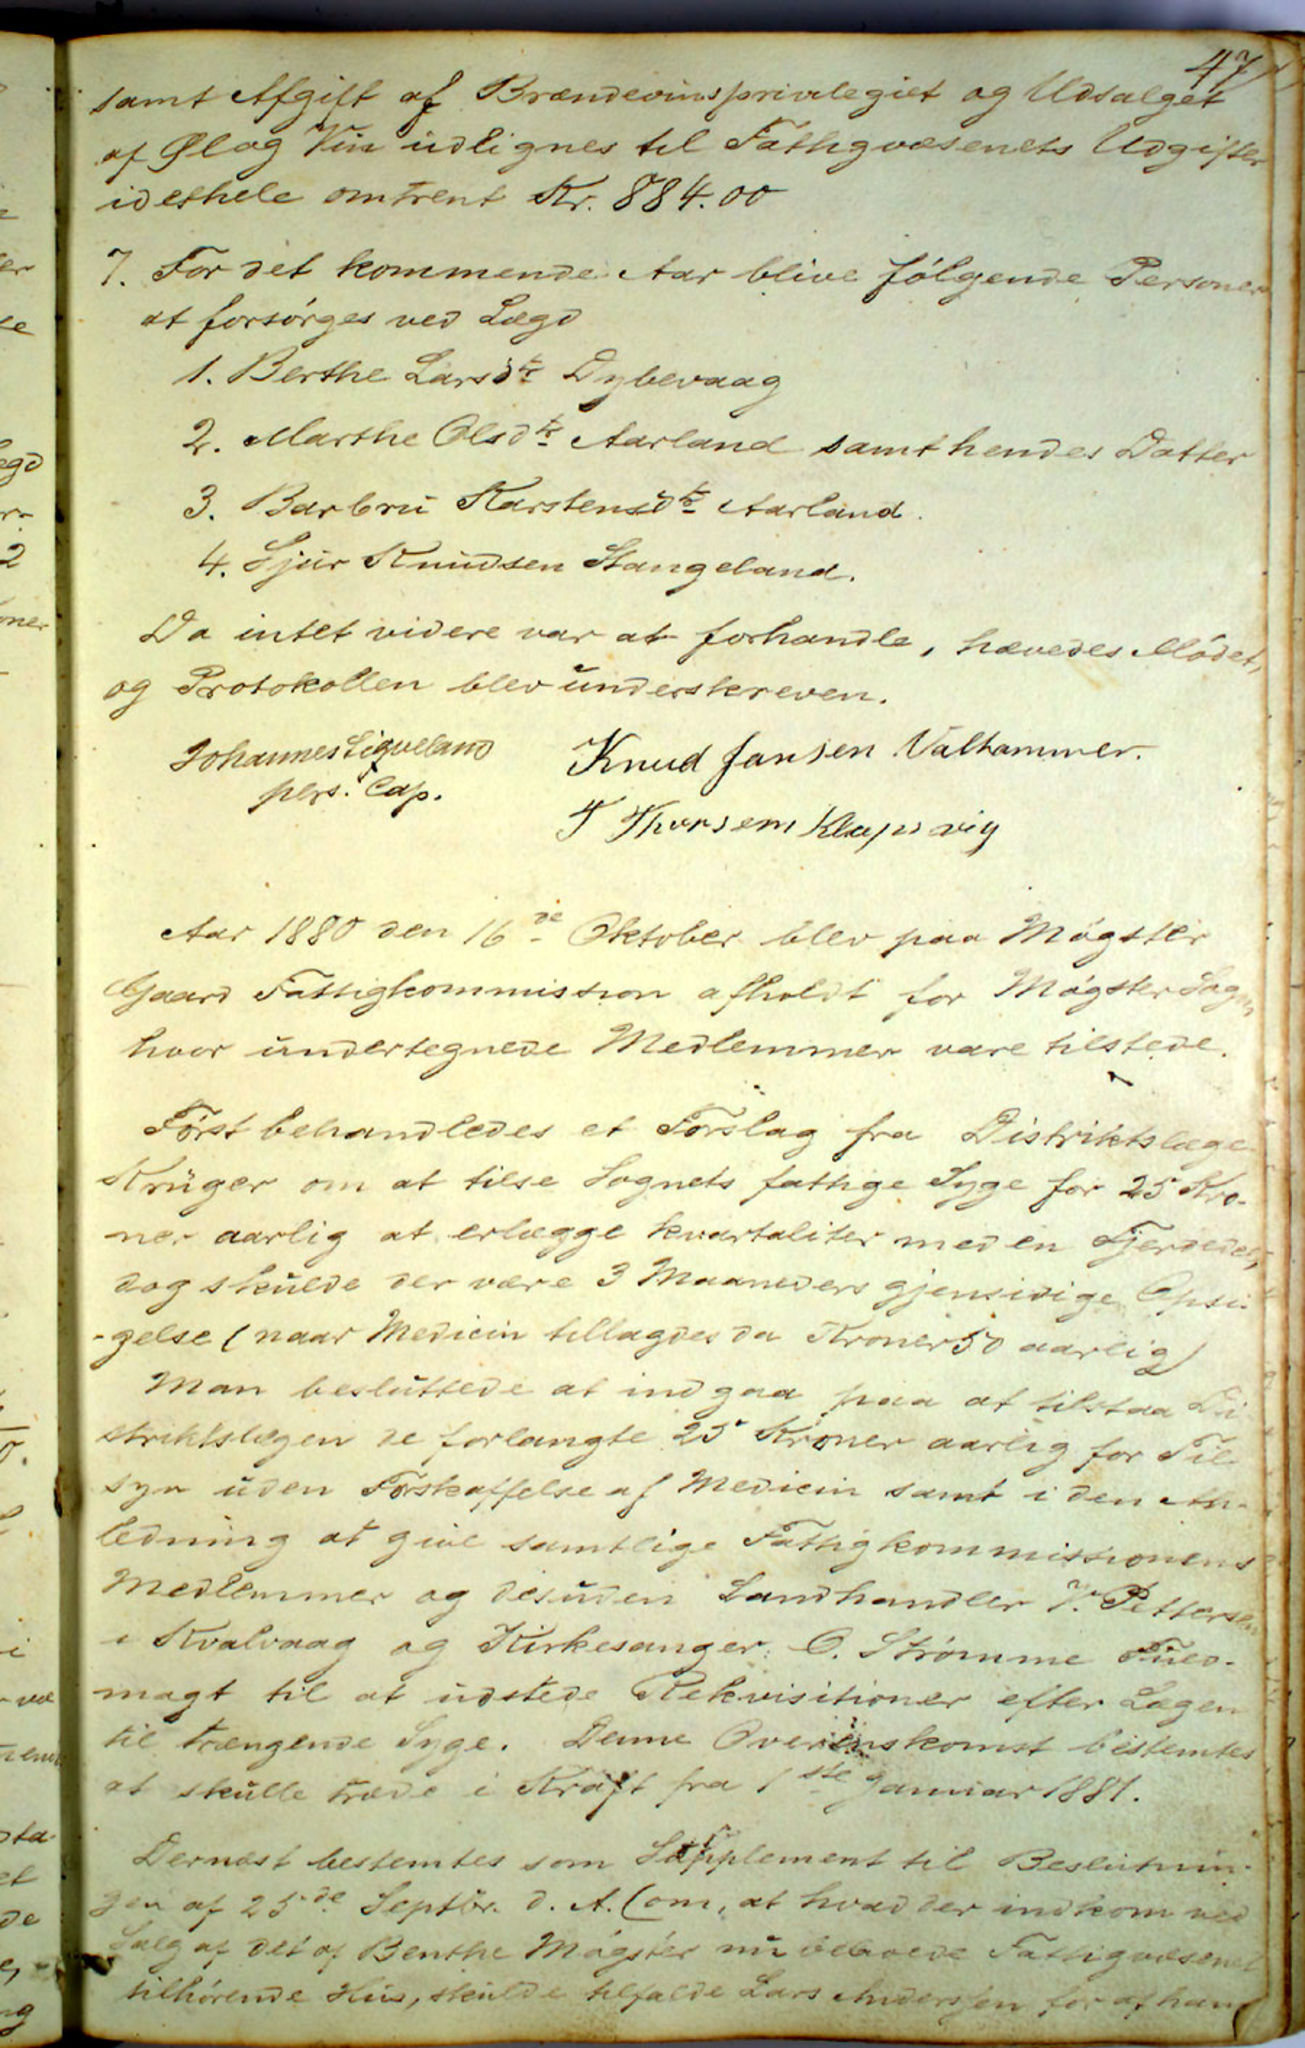 47
samt Afgift af Brændevinsprivilegiet og Udsalget
af Øl og Vin udlignes til Fathigvæsenets Udgifter
idethele omtrent Kr. 884.00
7. For det kommende Aar blive følgende Personer
at forsørges ved Lægd
1. Berthe Larsdtr Dybevaag
2. Marthe Olsdtr Aarland samt hendes Datter
3. Barbru Karstensdtr Aarland.
4. Sjur Knudsen Stangeland.
Da intet videre var at forhandle, hævedes Mødet,
og Protokollen blev underskreven.
Johannes Sigveland Knud Jansen Valhammer.
pers. Cap.
T Thorsen Klapsvig
Aar 1880 den 16de Oktober blev paa Møgster
Gaard Fattigkommission afholdt for Møgster Sogn
hvor undertegnede Medlemmer vare tilstede.
Først behandledes et Forslag fra Distriktslæge
Krüger om at tilse Sognets fattige Syge for 25 Kro-
ner aarlig at erlægge kvartaliter med en Fjerdedel,
dog skulde der være 3 Maaneders gjensidige Opsi-
-gelse (naar Medicin tillagdes da Kroner 50 aarlig)
Man besluttede at indgaa paa at tilstaa Di
striktslægen de forlangte 25 Kroner aarlig for Til-
syn uden Forskaffelse af Medicin samt i den An-
ledning at give samtlige Fattigkommissionens
Medlemmer og desuden Landhandler V. Pettersen
i Kvalvaag og Kirkesanger O. Strømme Fuld-
magt til at udstede Rekvisitioner efter Lægen
til trængende Syge. Denne Overenskomst bestemtes
at skulle træde i Kraft fra 1ste Januar 1881.
Dernæst bestemtes som Supplement til Beslutnin-
gen af 25de Septbr. d. A. (om, at hvad der indkom ved
Salg af det af Benthe Møgster nu beboede Fattigvæsenet
tilhørende Hus, skulde tilfalde Lars Anderssen for af ham